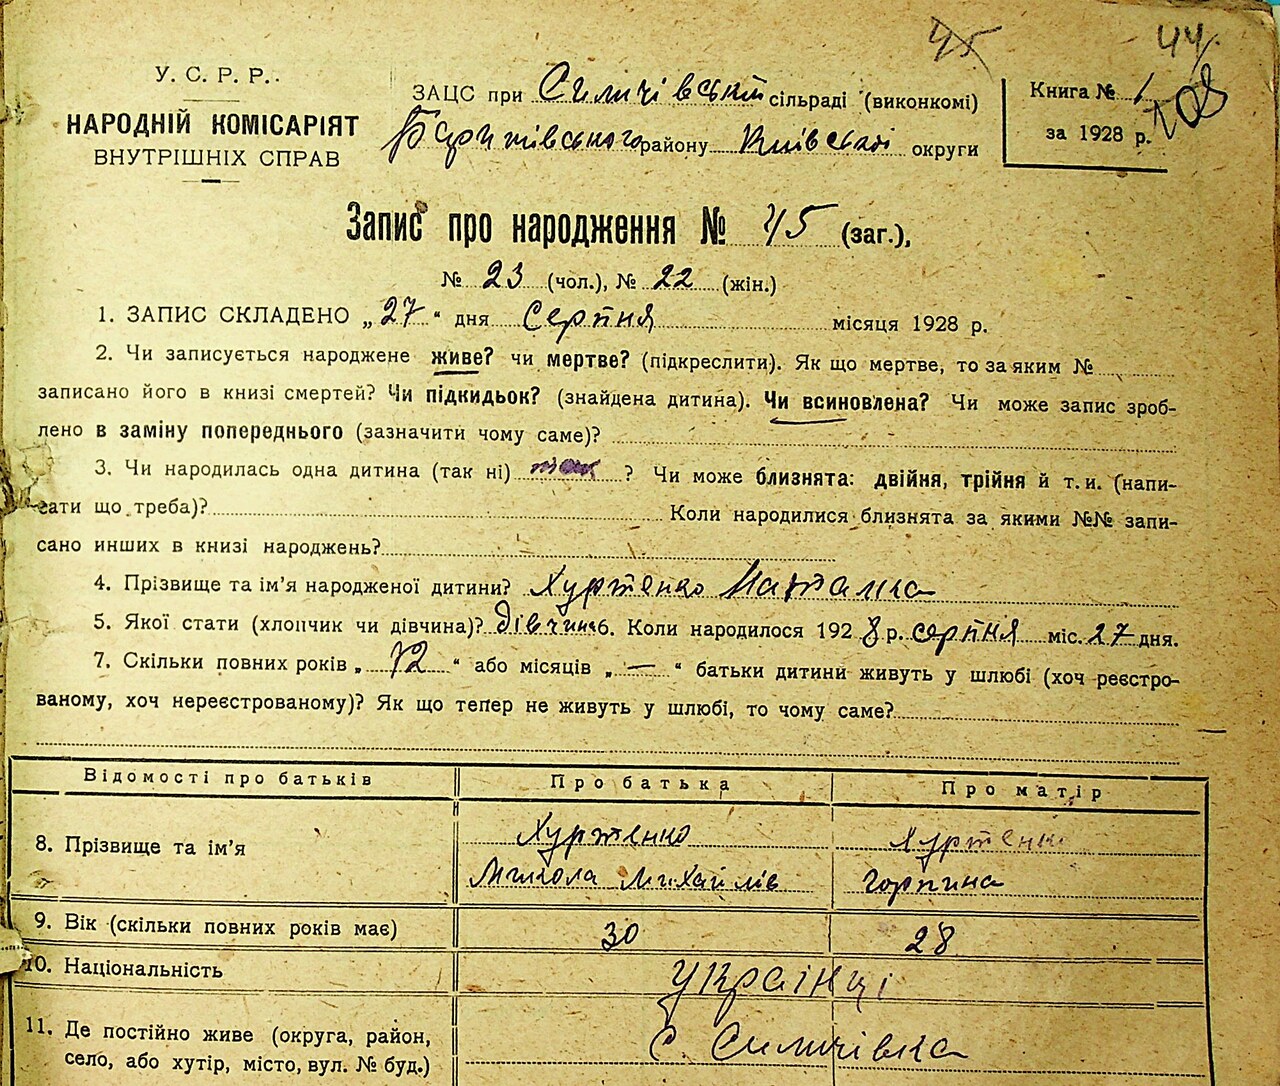 45 44
У. С. Р. Р.
НАРОДНІЙ КОМІСАРІЯТ
ВНУТРІШНІХ СПРАВ
ЗАЦС при сільраді (виконкомі)
району Київської округи
Книга № 1
108
за 1928 р.
Запис про народження № 45 (заг.),
№ 23 (чол.), № 22 (жін.)
1. ЗАПИС СКЛАДЕНО „27“ дня Серпня місяця 1928 р.
2. Чи записується народжене живе? чи мертве? (підкреслити). Як що мертве, то за яким №
записано його в книзі смертей? Чи підкидьок? (знайдена дитина). Чи всиновлена? Чи може запис зроб-
лено в заміну попереднього (зазначити чому саме)?
3. Чи народилась одна дитина (так ні) так ? Чи може близнята: двійня, трійня й т. и. (напи-
сати що треба)? Коли народилися близнята за якими №№ запи-
сано инших в книзі народжень?
4. Прізвище та ім'я народженої дитини? Хуртенко Наталка
5. Якої стати (хлопчик чи дівчина)? дівчина 6. Коли народилося 1928 р. серпня міс. 27 дня.
7. Скільки повних років „12“ або місяців „—“ батьки дитини живуть у шлюбі (хоч реєстро-
ваному, хоч нереєстрованому)? Як що тепер не живуть у шлюбі, то чому саме?
Відомості про батьків Про батька Про матір
8. Прізвище та ім'я Хуртенко Хуртенко
Микола Михайлів Горпина
9. Вік (скільки повних років має) 30 28
10. Національність українці
11. Де постійно живе (округа, район, с.
село, або хутір, місто, вул. № буд.)